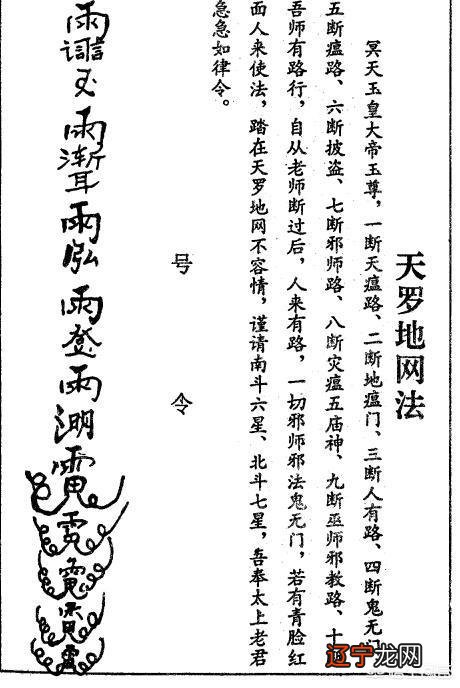 天罗地网法
冥天玉皇大帝玉尊，一断天瘟路、二断地瘟门、三断人有路、四断鬼无
五断瘟路、六断披盗、七断邪师路、八断灾瘟五庙神、九断巫师邪教路、十
吾师有路行，自从老师断过后，人来有路，一切邪师邪法鬼无门，若有青脸红
面人来使法，踏在天罗地网不容情，谨请南斗六星、北斗七星，吾奉太上老君
急急如律令。
号令
辽宁龙网